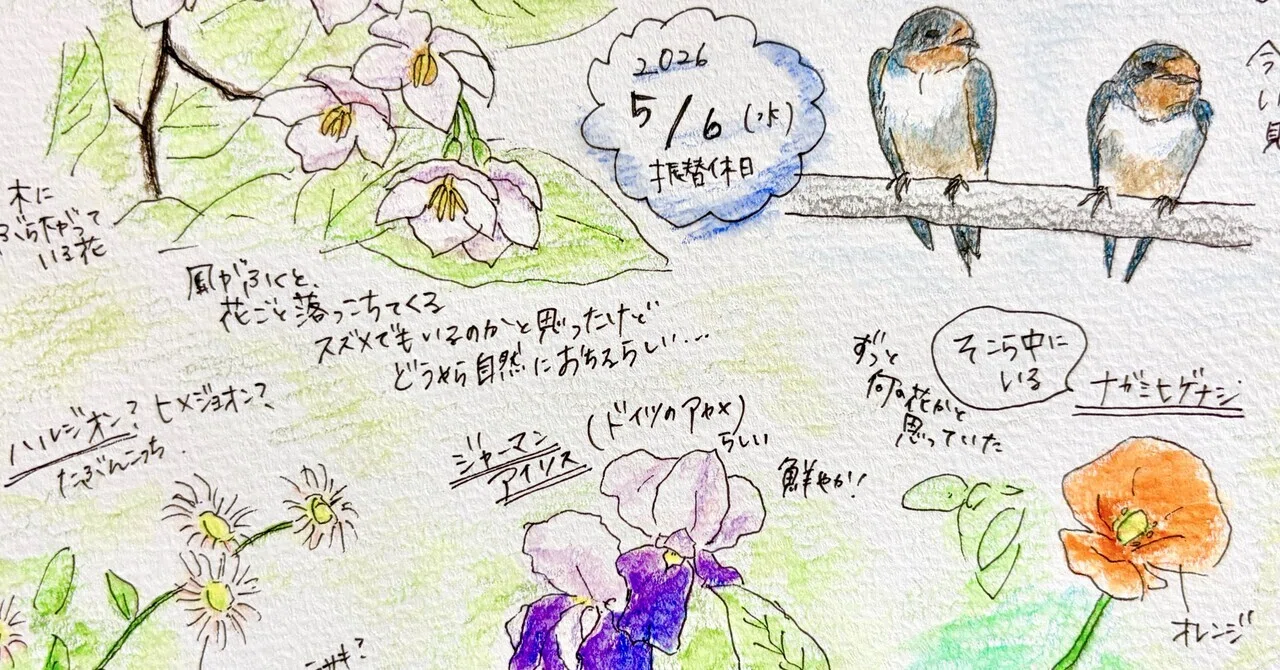 2026
5/6(水)
振替休日
今
い
見
木に
ぶら下がって
いる花
風がふくと、
花ごと落っこちてくる
スズメでもいるのかと思ったけど
どうやら自然におちるらしい...
ハルジオン?ヒメジョオン?
たぶんこっち
ジャーマン
アイリス
(ドイツのアヤメ)
らしい
鮮やか!
ずっと
何の花かと
思っていた
そこら中に
いる
ナガミヒゲナシ
オレンジ
サキ?